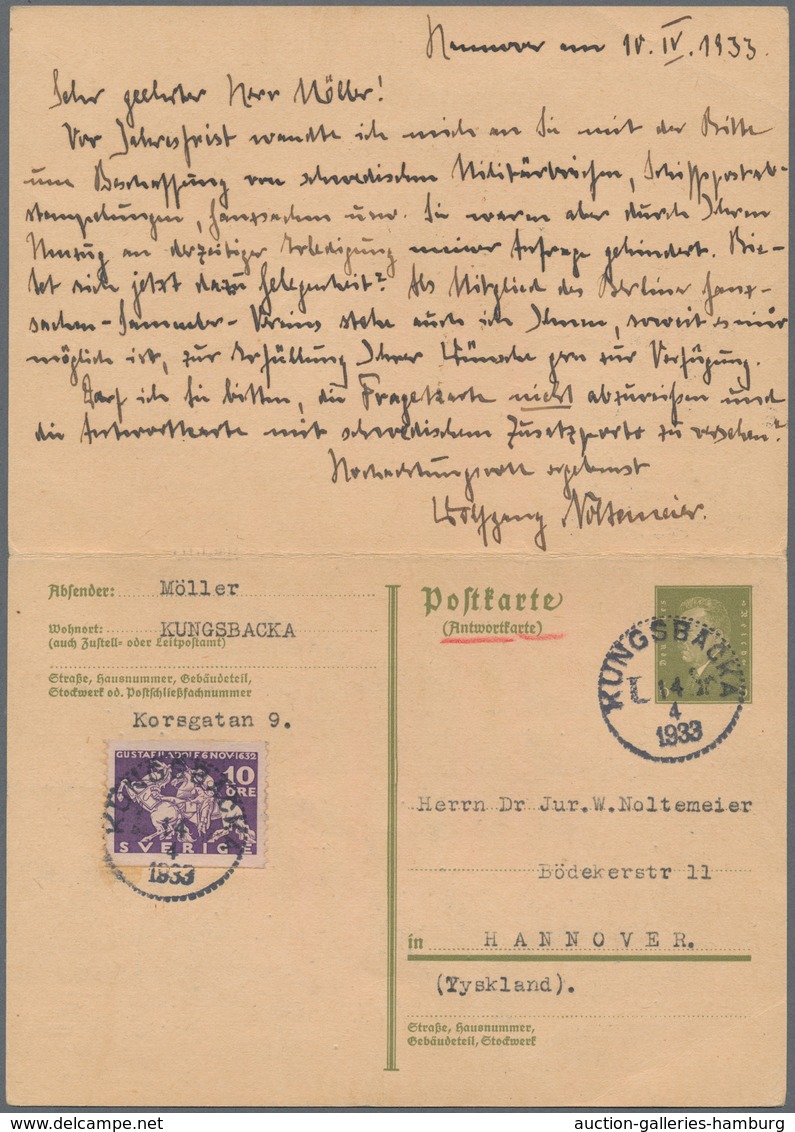 Hannover am 10.IV.1933.
Sehr geehrter Herr Möller!
Vor Jahresfrist wandte ich mich an Sie mit der Bitte
um Beschaffung von schwedischen Militärbriefen, Schiffspostab-
stempelungen, Ganzsachen usw. Sie waren aber durch Ihren
Umzug an derzeitiger Erledigung meiner Anfrage gehindert. Bie-
tet sich jetzt dazu Gelegenheit? Als Mitglied des Berliner Ganz-
sachen-Sammler-Vereins stehe auch ich Ihnen, soweit es mir
möglich ist, zur Erfüllung Ihrer Wünsche gern zur Verfügung.
Darf ich Sie bitten, die Fragekarte nicht abzureißen und
die Antwortkarte mit schwedischem Zusatzporto zu versehen?
Hochachtungsvoll ergebenst
Wolfgang Noltemeier.
Absender: Möller
Wohnort: KUNGSBACKA
(auch Zustell- oder Leitpostamt)
Straße, Hausnummer, Gebäudeteil,
Stockwerk od. Postschließfachnummer
Korsgatan 9.
GUSTAF II ADOLF 6 NOV 1632
10
ÖRE
SVERIGE
KUNGSBACKA
14
4
1933
Postkarte
(Antwortkarte)
Deutsches Reich
KUNGSBACKA
14
4
1933
Herrn Dr Jur.W.Noltemeier
Bödekerstr 11
in HANNOVER.
(Tyskland).
Straße, Hausnummer,
Gebäudeteil, Stockwerk
auction-galleries-hamburg